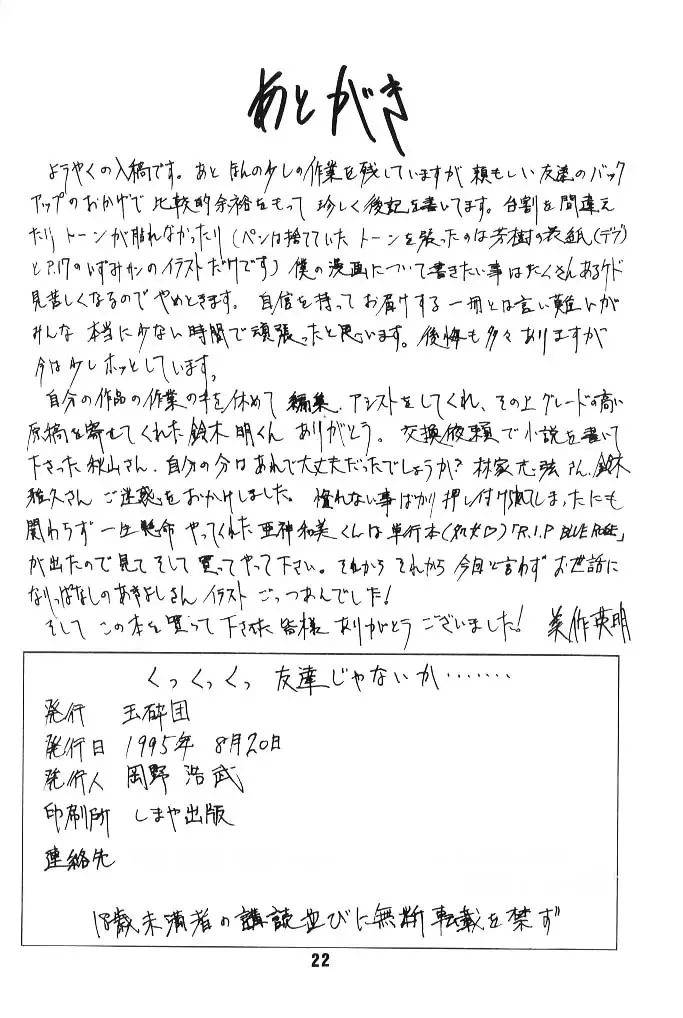 あとがき
ようやくの入稿です。あとほんの少しの作業を残していますが頼もしい友達のバック
アップのおかげで比較的余裕をもって珍しく後記を書いてます。台割を間違え
たりトーンが貼れなかったり(ペンは捨てていたトーンを張ったのは芳樹の表紙(デブ)
とP.17のいずみかのイラストだけです)僕の漫画について書きたい事はたくさんあるケド
見苦しくなるのでやめときます。自信を持ってお届けする一冊とは言い難いが
みんな本当に少ない時間で頑張ったと思います。後悔も多々ありますが
今は少しホッとしています。
自分の作品の作業の手を休めて編集、アシストをしてくれ、その上グレードの高い
原稿を寄せてくれた鈴木明くんありがとう。交換依頼で小説を書いて
下さった秋山さん、自分の分はあれで大丈夫だったでしょうか?林家志弦さん、鈴木
雅久さんご迷惑をおかけしました。慣れない事ばかり押し付けられてしまったにも
関わらず一生懸命やってくれた亜神和美くんは単行本(処女♡)「R.I.P BLUE ROSE」
が出たので見てそして買ってやって下さい。それからそれから今回と言わずお世話に
なりっぱなしのあきよしさんイラストごっつあんでした!
そしてこの本を買って下さった皆様ありがとうございました! 美作英明
くっくっくっ 友達じゃないか・・・・・・・
発行 玉砕団
発行日 1995年 8月20日
発行人 岡野 浩武
印刷所 しまや出版
連絡先
18歳未満者の講読並びに無断転載を禁ず
22